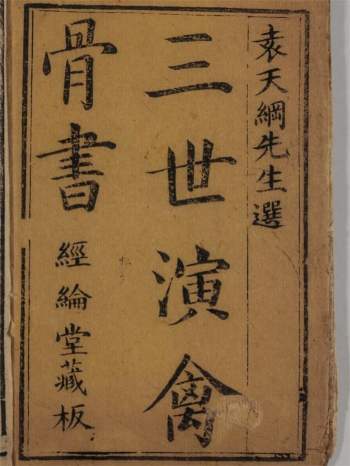 袁天綱先生選
三世演禽
骨書
經綸堂藏板